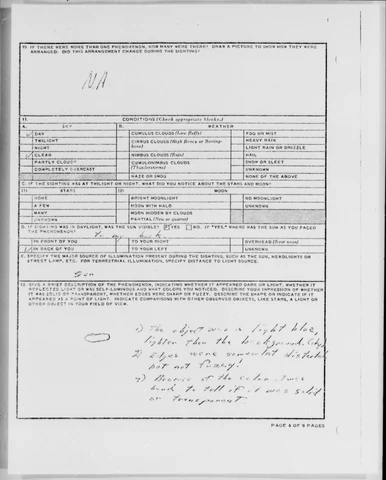 10. IF THERE WERE MORE THAN ONE PHENOMENON, HOW MANY WERE THERE? DRAW A PICTURE TO SHOW HOW THEY WERE
ARRANGED. DID THIS ARRANGEMENT CHANGE DURING THE SIGHTING?
NA
11. CONDITIONS (Check appropriate blocks)
A. SKY B. WEATHER
DAY CUMULUS CLOUDS (Low fluffy) FOG OR MIST
TWILIGHT CIRRUS CLOUDS (High fleecy or Herring-bone) HEAVY RAIN
NIGHT LIGHT RAIN OR DRIZZLE
CLEAR NIMBUS CLOUDS (Rain) HAIL
PARTLY CLOUDY CUMULONIMBUS CLOUDS (Thunderstorms) SNOW OR SLEET
COMPLETELY OVERCAST UNKNOWN
HAZE OR SMOG NONE OF THE ABOVE
C. IF THE SIGHTING WAS AT TWILIGHT OR NIGHT, WHAT DID YOU NOTICE ABOUT THE STARS AND MOON?
(1) STARS (2) MOON
NONE BRIGHT MOONLIGHT NO MOONLIGHT
A FEW MOON WITH HALO UNKNOWN
MANY MOON HIDDEN BY CLOUDS
UNKNOWN PARTIAL (New or quarter)
D. IF SIGHTING WAS IN DAYLIGHT, WAS THE SUN VISIBLE? YES NO. IF "YES," WHERE WAS THE SUN AS YOU FACED
THE PHENOMENON?
IN FRONT OF YOU TO YOUR RIGHT OVERHEAD (Near noon)
IN BACK OF YOU TO YOUR LEFT UNKNOWN
E. SPECIFY THE MAJOR SOURCE OF ILLUMINATION PRESENT DURING THE SIGHTING, SUCH AS THE SUN, HEADLIGHTS OR
STREET LAMP, ETC. FOR TERRESTRIAL ILLUMINATION, SPECIFY DISTANCE TO LIGHT SOURCE.
Sun
12. GIVE A BRIEF DESCRIPTION OF THE PHENOMENON, INDICATING WHETHER IT APPEARED DARK OR LIGHT, WHETHER IT
REFLECTED LIGHT OR WAS SELF-LUMINOUS AND WHAT COLORS YOU NOTICED. DESCRIBE YOUR IMPRESSION OF WHETHER
IT WAS SOLID OR TRANSPARENT, WHETHER EDGES WERE SHARP OR FUZZY. DESCRIBE THE SHAPE OR INDICATE IF IT
APPEARED AS A POINT OF LIGHT. INDICATE COMPARISONS WITH OTHER OBSERVED OBJECTS, LIKE STARS, A LIGHT OR
OTHER OBJECT IN YOUR FIELD OF VIEW.
1) The object was a light blue,
lighter then the background (sky)
2) edges were somewhat distorted
but not fuzzy!
Because of the color it was
hard to tell if it was solid
or transparent
PAGE 4 OF 9 PAGES